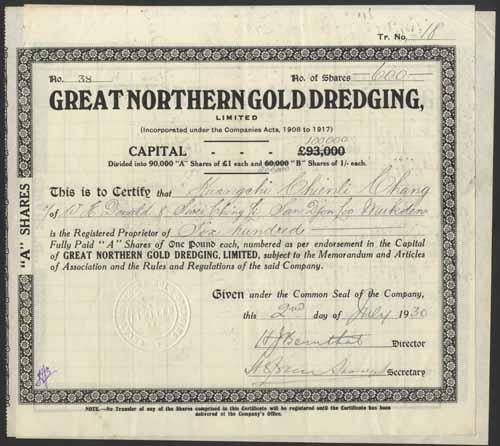 Tr. No. 18
No. 38 No. of Shares -600-
GREAT NORTHERN GOLD DREDGING,
LIMITED
(Incorporated under the Companies Acts, 1908 to 1917)
100,000
CAPITAL - - - £93,000
Divided into 90,000 "A" Shares of £1 each and 60,000 "B" Shares of 1/- each.
200,000
"A" SHARES
This is to Certify that Kuangchi Chang
of W E Donald & San Moukden
is the Registered Proprietor of Six hundred
Fully Paid "A" Shares of One Pound each, numbered as per endorsement in the Capital
of GREAT NORTHERN GOLD DREDGING, LIMITED, subject to the Memorandum and Articles
of Association and the Rules and Regulations of the said Company.
Given under the Common Seal of the Company,
this 2nd day of July 1930
Director
Secretary
NOTE.—No Transfer of any of the Shares comprised in this Certificate will be registered until the Certificate has been
delivered at the Company's Office.